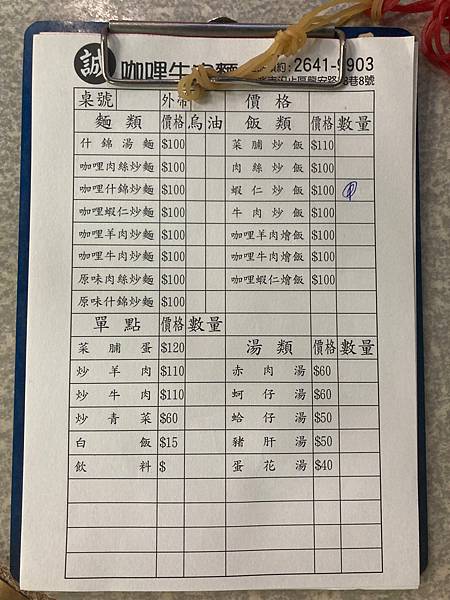 誠 咖哩牛肉麵 2641-9903
龍安路 巷8號
桌號 外帶 價格
麵類 價格 烏 油 飯類 價格 數量
什錦湯麵 $100 菜脯炒飯 $110
咖哩肉絲炒麵 $100 肉絲炒飯 $100
咖哩什錦炒麵 $100 蝦仁炒飯 $100
咖哩蝦仁炒麵 $100 牛肉炒飯 $100
咖哩羊肉炒麵 $100 咖哩羊肉燴飯 $100
咖哩牛肉炒麵 $100 咖哩牛肉燴飯 $100
原味肉絲炒麵 $100 咖哩蝦仁燴飯 $100
原味什錦炒麵 $100
單點 價格 數量 湯類 價格 數量
菜脯蛋 $120
炒羊肉 $110 赤肉湯 $60
炒牛肉 $110 蚵仔湯 $60
炒青菜 $60 蛤仔湯 $50
白飯 $15 豬肝湯 $50
飲料 $ 蛋花湯 $40